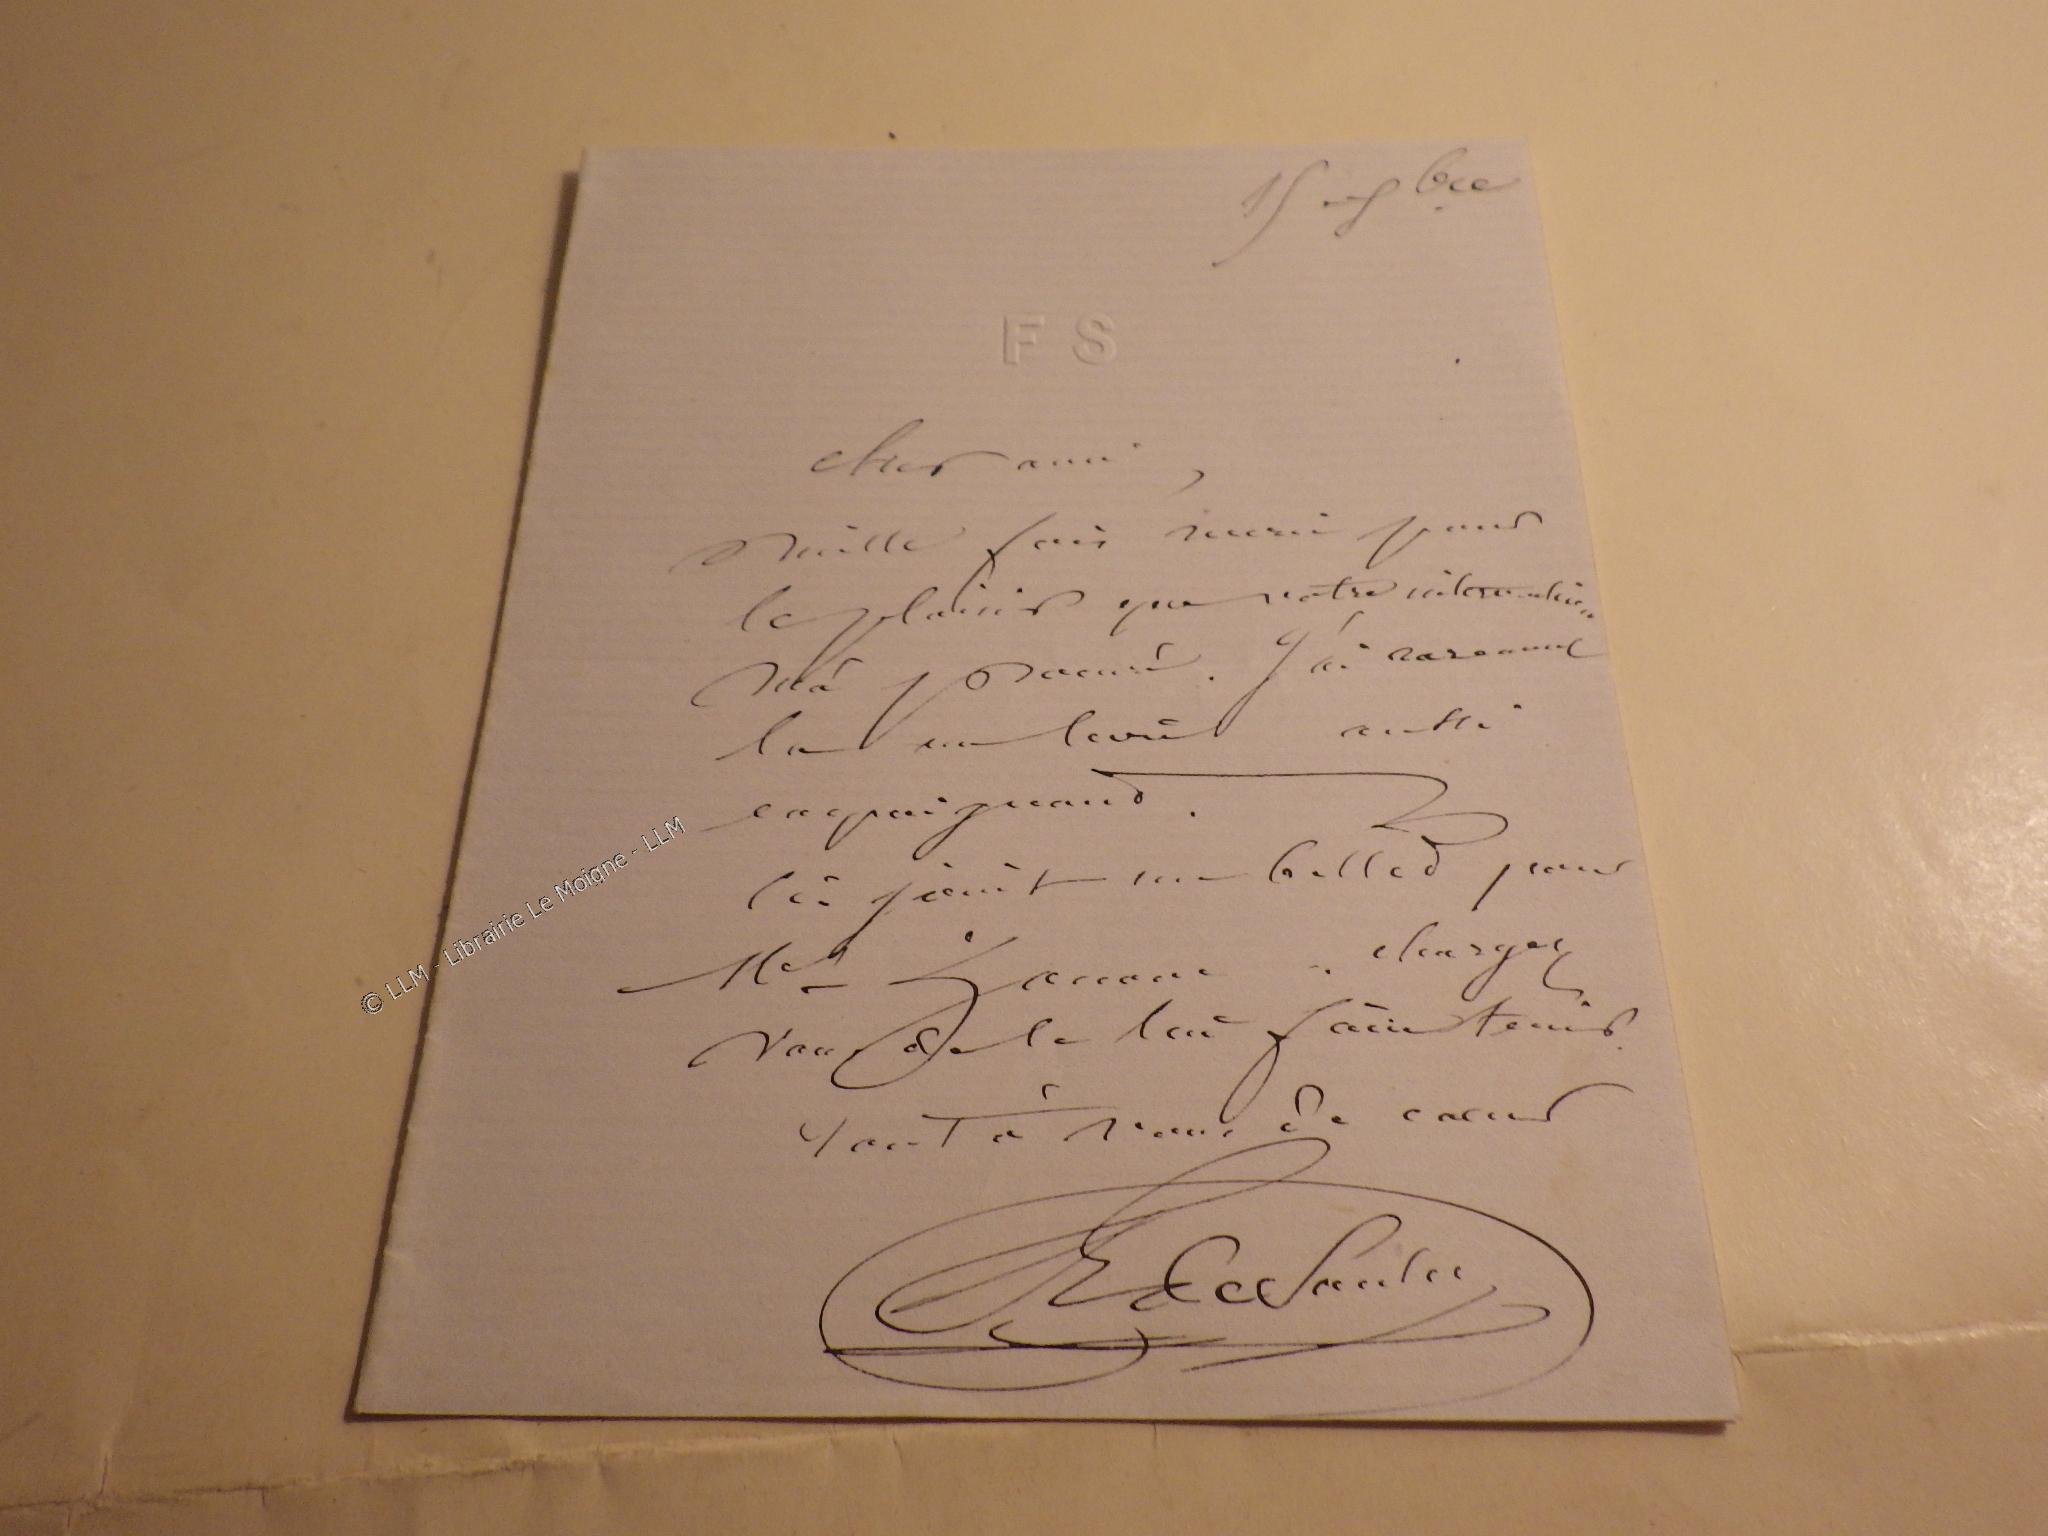 15
F S
Cher ami,
Mille fois merci pour
le plaisir que votre intervention
m'a procuré. J'ai
la aussi
empoignant.
Ci joint un billet pour
Mr chargez
vous de le lui faire tenir.
Tout à vous de cœur
© LLM - Librairie Le Moigne - LLM